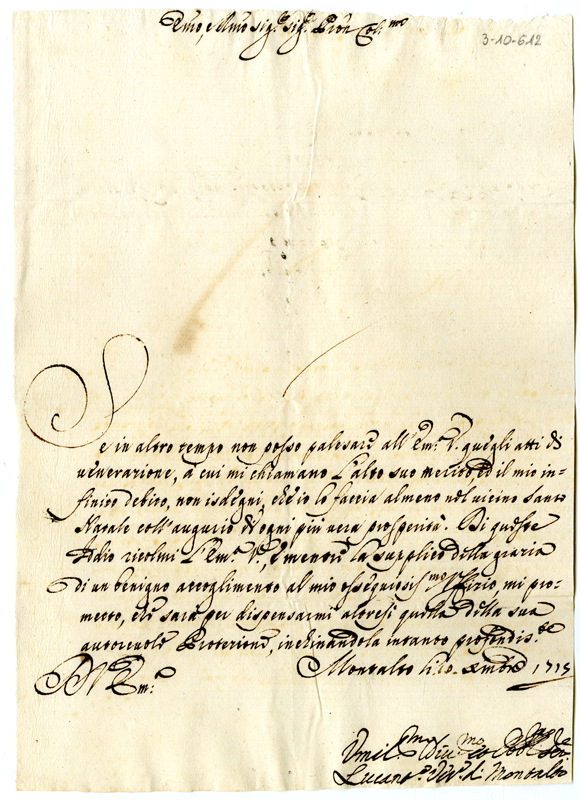 Emo, e Rmo Sig.r Sig.r Pron Col.mo
3-10-612
Se in altro tempo non posso palesare all'Em.a V. quegli atti di
venerazione, a cui mi chiamano l'alto suo merito, ed il mio in-
finito debito, non isdegni, che io lo faccia almeno nel vicino santo
Natale coll'augurio d'ogni più vera prosperità. Di queste
Iddio ricolmi l'Em.a V.a, e mentre la supplico della grazia
di un benigno accoglimento al mio ossequiosis.mo Uffizio, mi pro-
metto, che sarà per dispensarmi altresì quella della sua
autorevole Protezione, inchinandola intanto profondis.te
Di V. Em.a Montalto li 10. Xmbre 1715
Umil.mo Div.mo et Obl.mo
Lucant.o Vº di Montalto